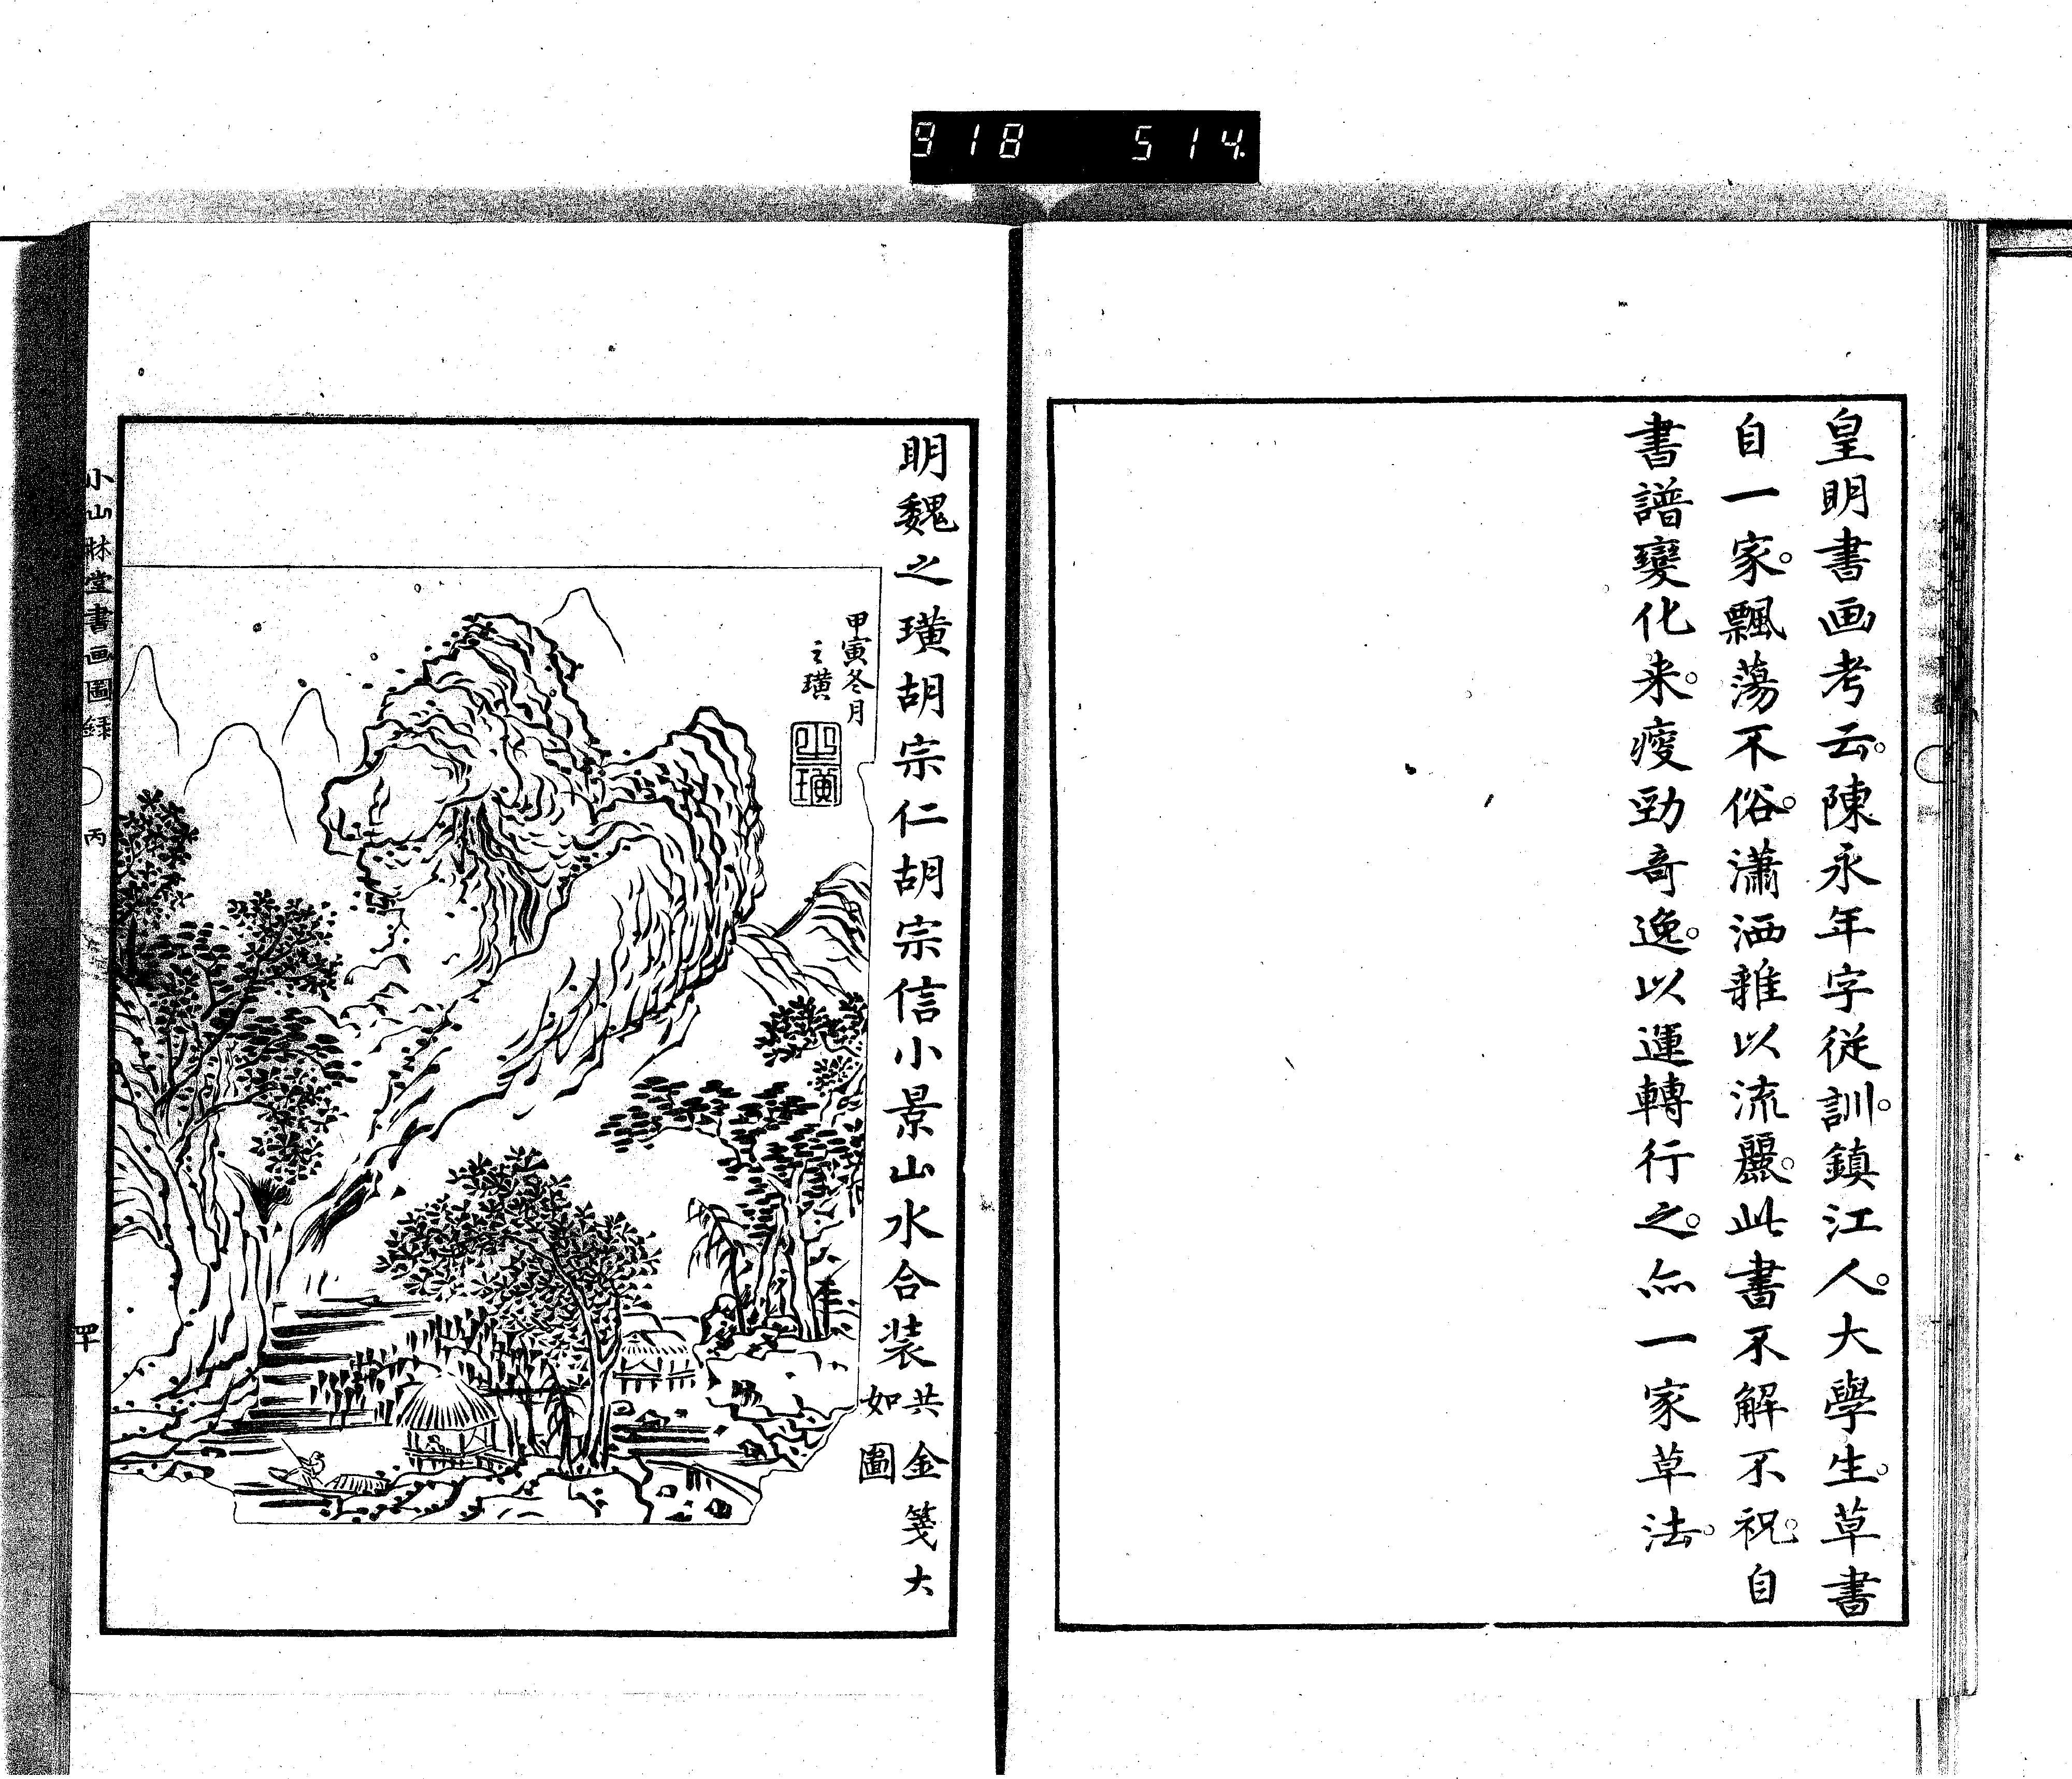 918 514
皇明書画考云。陳永年字従訓。鎮江人。大學生。草書
自一家。飄蕩不俗。瀟洒雜以流麗。此書不解不祝。自
書譜變化来。瘦勁竒逸。以運轉行之。亦一家草法。
明魏之璜胡宗仁胡宗信小景山水合装 共金箋大
如圖
甲寅冬月
之璜
之璜
小山林堂書画圖録 丙